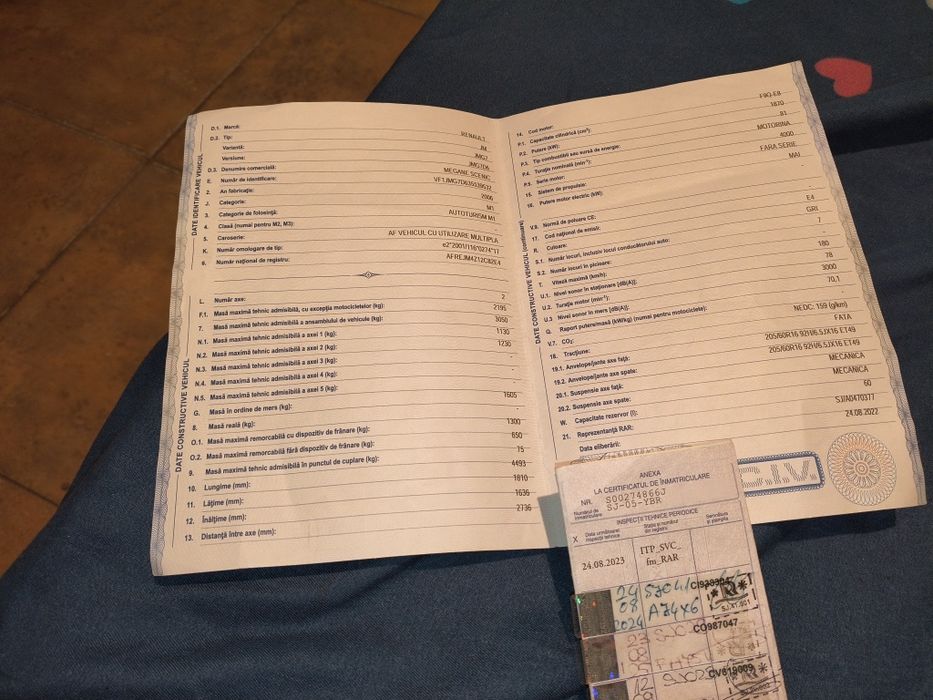 DATE IDENTIFICARE VEHICUL
D.1. Marcă: RENAULT
D.2. Tip: JM
Varianta: JMG7
Versiune: JMG7D6
D.3. Denumire comercială: MEGANE SCENIC
E. Număr de identificare:
2. An fabricaţie: 2006
J. Categorie: M1
3. Categorie de folosinţă: AUTOTURISM M1
4. Clasă (numai pentru M2, M3): -
5. Caroserie: AF VEHICUL CU UTILIZARE MULTIPLA
K. Număr omologare de tip: e2*2001/116*0274*17
6. Număr naţional de registru: AFREJM4Z12C82E4
DATE CONSTRUCTIVE VEHICUL
L. Număr axe: 2
F.1. Masă maximă tehnic admisibilă, cu excepţia motocicletelor (kg): 2195
7. Masă maximă tehnic admisibilă a ansamblului de vehicule (kg): 3050
N.1. Masă maximă tehnic admisibilă a axei 1 (kg): 1130
N.2. Masă maximă tehnic admisibilă a axei 2 (kg): 1236
N.3. Masă maximă tehnic admisibilă a axei 3 (kg): -
N.4. Masă maximă tehnic admisibilă a axei 4 (kg): -
N.5. Masă maximă tehnic admisibilă a axei 5 (kg): -
G. Masă în ordine de mers (kg): 1605
8. Masă reală (kg): -
O.1. Masă maximă remorcabilă cu dispozitiv de frânare (kg): 1300
O.2. Masă maximă remorcabilă fără dispozitiv de frânare (kg): 650
9. Masă maximă tehnic admisibilă în punctul de cuplare (kg): 75
10. Lungime (mm): 4493
11. Lăţime (mm): 1810
12. Înălţime (mm): 1636
13. Distanţă între axe (mm): 2736
DATE CONSTRUCTIVE VEHICUL (continuare)
14. Cod motor: F9Q-E8
P.1. Capacitate cilindrică (cm³): 1870
P.2. Putere (kW): 81
P.3. Tip combustibil sau sursă de energie: MOTORINA
P.4. Turaţie nominală (min-¹): 4000
P.5. Serie motor: FARA SERIE
15. Sistem de propulsie: MAI
16. Putere motor electric (kW): -
V.9. Normă de poluare CE: E4
17. Cod naţional de emisii: -
R. Culoare: GRI
S.1. Număr locuri, inclusiv locul conducătorului auto: 7
S.2. Număr locuri în picioare: -
T. Viteză maximă (km/h): 180
U.1. Nivel sonor în staţionare [dB(A)]: 78
U.2. Turaţie motor (min-¹): 3000
U.3 Nivel sonor în mers [dB(A)]: 70,1
Q. Raport putere/masă (kW/kg) (numai pentru motociclete): -
V.7. CO₂: NEDC: 159 (g/km)
18. Tracţiune: FATA
19.1. Anvelope/jante axe faţă: 205/60R16 92H/6.5JX16 ET49
19.2. Anvelope/jante axe spate: 205/60R16 92H/6.5JX16 ET49
20.1. Suspensie axe faţă: MECANICA
20.2. Suspensie axe spate: MECANICA
W. Capacitate rezervor (l): 60
21. Reprezentanţă RAR: SJ/A0470377
Data eliberării: 24.08.2022
CIV
ANEXA
LA CERTIFICATUL DE ÎNMATRICULARE
NR. S00274866J
Numărul de înmatriculare SJ-05-YBR
INSPECŢII TEHNICE PERIODICE
X Data următoarei inspecţii tehnice
Staţia şi numărul din registru
Semnătura şi ştampila
24.08.2023 ITP_SVC_
fm_RAR
24
08
2024
A74X6
SJ.X1.001
CO987047
CV619009